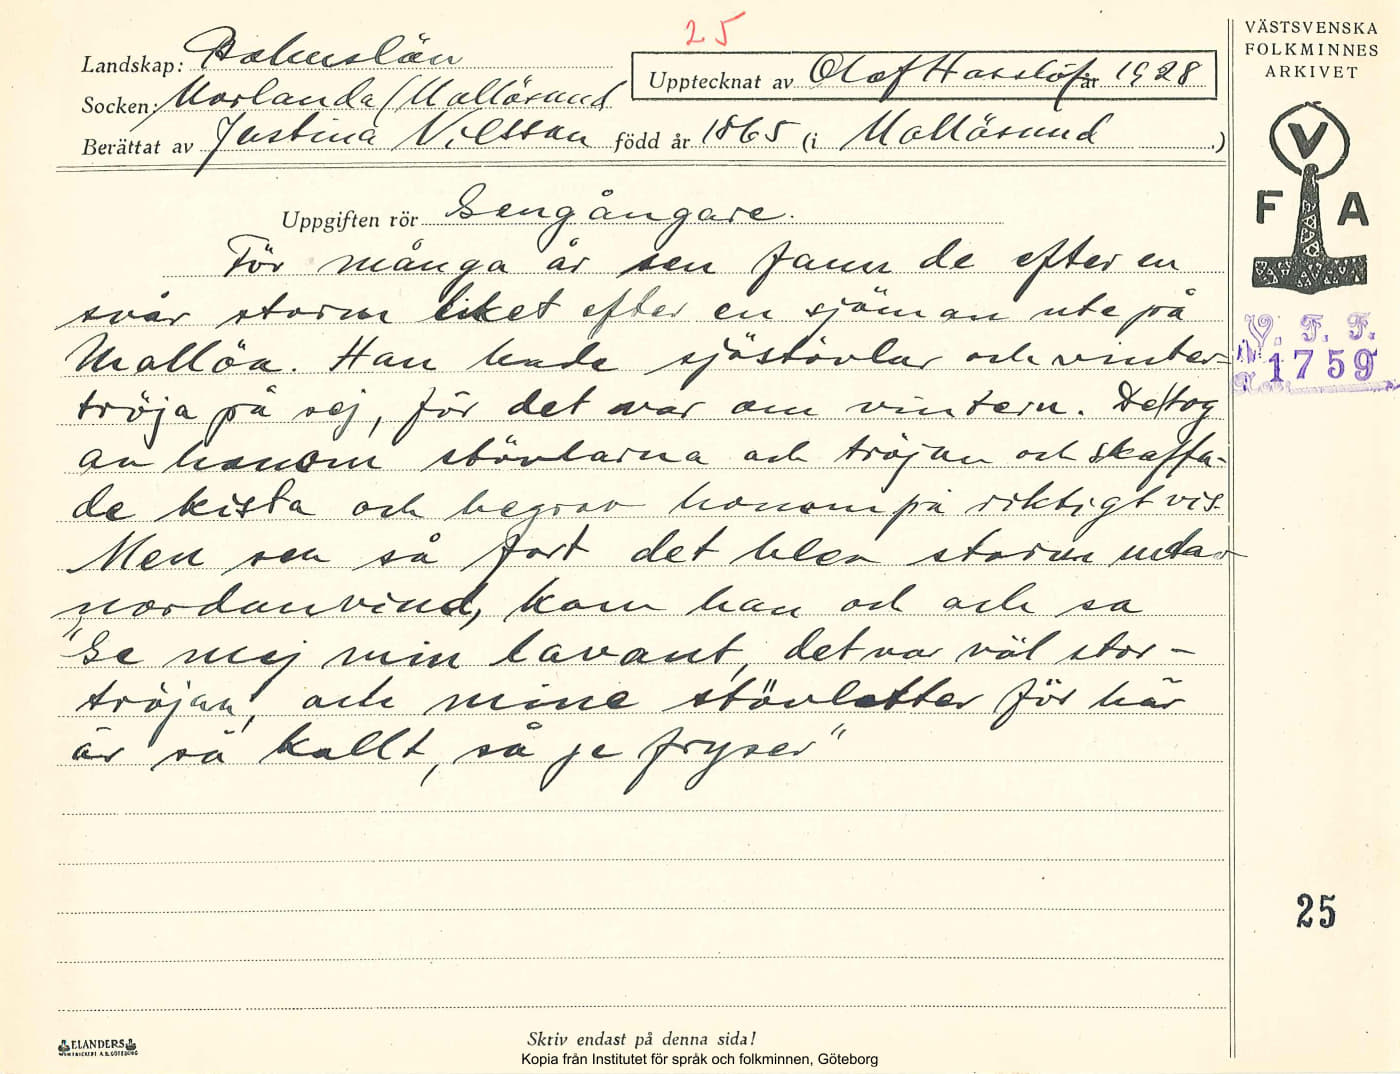 25
Landskap: Bohuslän
Socken: Morlanda (Mollösund
Berättat av Justina Nilsson född år 1865 (i Mollösund .)
Upptecknat av Olof Hasslöf år 1928
VÄSTSVENSKA
FOLKMINNES
ARKIVET
V
F A
V. F. F.
1759
Uppgiften rör Gengångare.
För många år sen fann de efter en
svår storm liket efter en sjöman ute på
Mollöa. Han hade sjöstövlar och vinter-
tröja på sej, för det var om vintern. De tog
av honom stövlarna och tröjan och skaffa-
de kista och begrov honom på riktigt vis.
Men sen så fort det blev storm utav
nordanvind, kom han och och sa
"Ge mej min lavant, det var väl stor-
tröjan, och mine stövletter för här
är så kallt, så je fryser"
25
ELANDERS
Skriv endast på denna sida!
Kopia från Institutet för språk och folkminnen, Göteborg